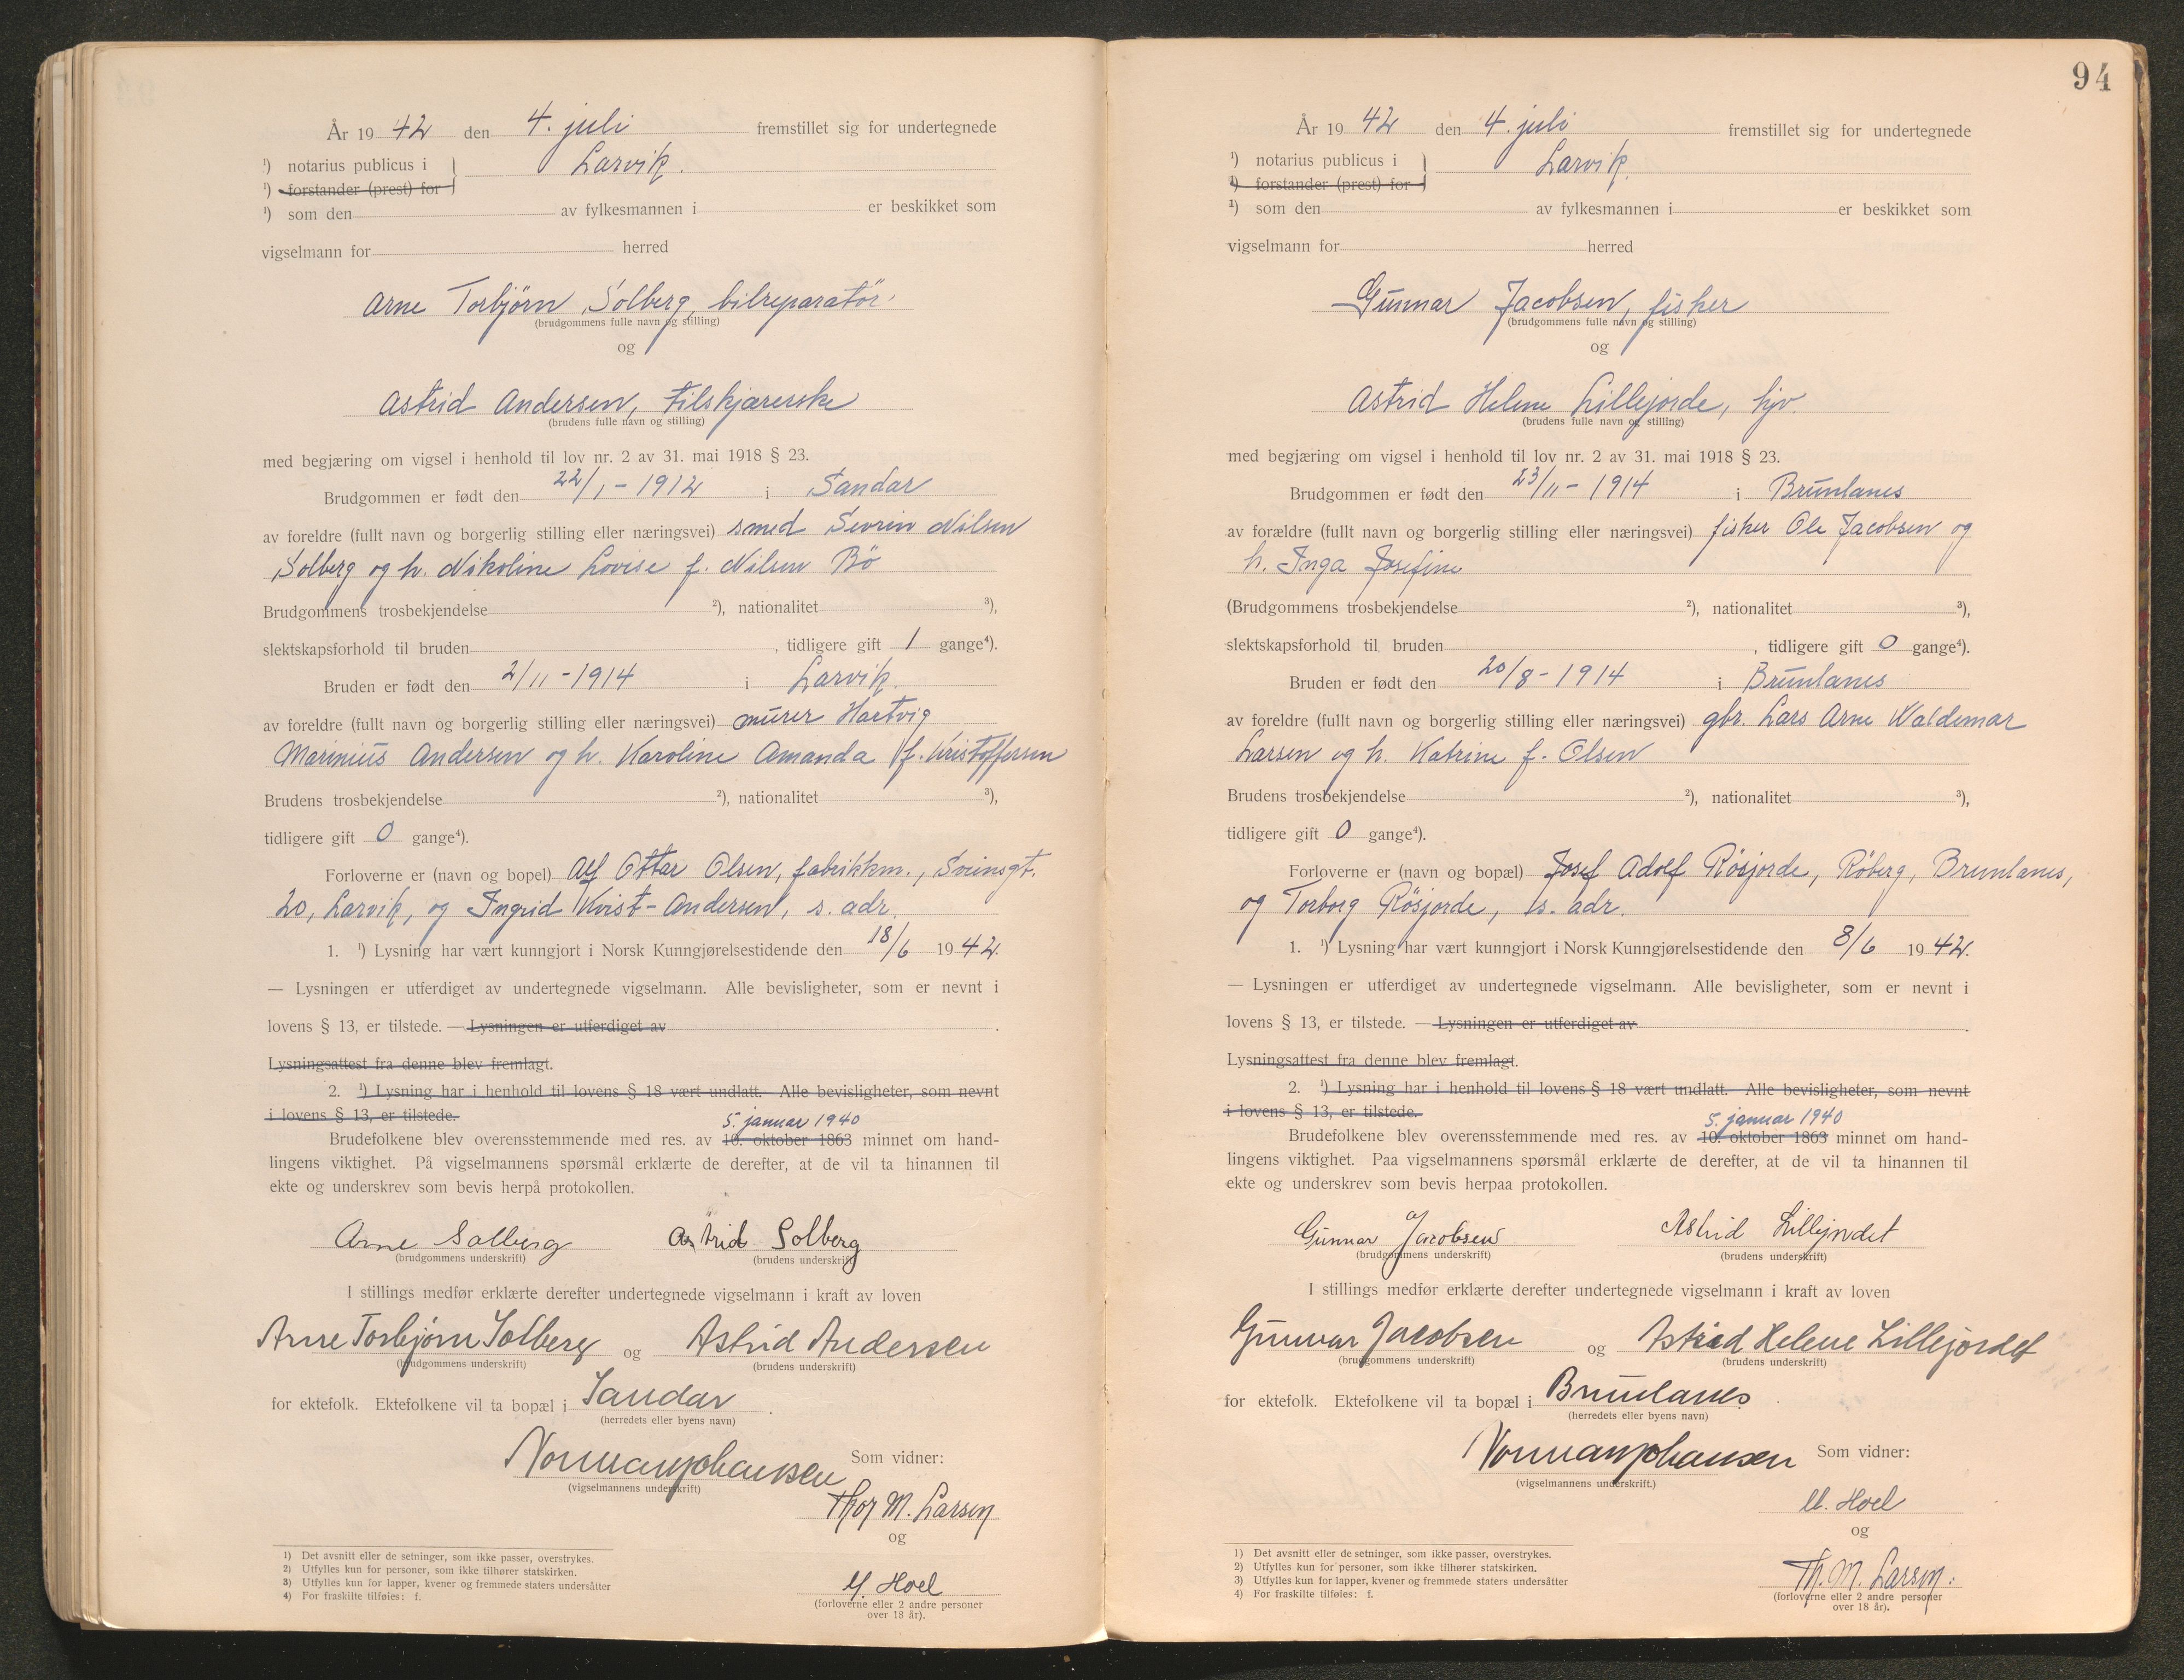 År 19 42 den 4. juli fremstillet sig for undertegnede
¹) notarius publicus i } Larvik.
¹) forstander (prest) for
¹) som den av fylkesmannen i er beskikket som
vigselmann for herred
Arne Torbjørn Solberg, bilreparatör.
(brudgommens fulle navn og stilling)
og
Astrid Andersen, tilskjærerske
(brudens fulle navn og stilling)
med begjæring om vigsel i henhold til lov nr. 2 av 31. mai 1918 § 23.
Brudgommen er født den 22/1 - 1912 i Sandar
av foreldre (fullt navn og borgerlig stilling eller næringsvei) smed Sevrin Nilsen
Solberg og h. Nikoline Lovise f. Nilsen Bö
Brudgommens trosbekjendelse ²), nationalitet ³),
slektskapsforhold til bruden , tidligere gift 1 gange⁴).
Bruden er født den 2/11 - 1914 i Larvik.
av foreldre (fullt navn og borgerlig stilling eller næringsvei) murer Hartvig
Marinius Andersen og h. Karoline Amanda f. Kristoffersen
Brudens trosbekjendelse ²), nationalitet ³),
tidligere gift 0 gange⁴).
Forloverne er (navn og bopel) Alf Ottar Olsen, fabrikkm., Sveinsgt.
20, Larvik, og Ingrid Kvist-Andersen, s. adr.
1. ¹) Lysning har vært kunngjort i Norsk Kunngjørelsestidende den 18/6 19 42.
— Lysningen er utferdiget av undertegnede vigselmann. Alle bevisligheter, som er nevnt i
lovens § 13, er tilstede. — Lysningen er utferdiget av .
Lysningsattest fra denne blev fremlagt.
2. ¹) Lysning har i henhold til lovens § 18 vært undlatt. Alle bevisligheter, som nevnt
i lovens § 13, er tilstede.
5. januar 1940
Brudefolkene blev overensstemmende med res. av 10. oktober 1863 minnet om hand-
lingens viktighet. På vigselmannens spørsmål erklærte de derefter, at de vil ta hinannen til
ekte og underskrev som bevis herpå protokollen.
Arne Solberg Astrid Solberg
(brudgommens underskrift) (brudens underskrift)
I stillings medfør erklærte derefter undertegnede vigselmann i kraft av loven
Arne Torbjørn Solberg og Astrid Andersen
(brudgommens underskrift) (brudens underskrift)
for ektefolk. Ektefolkene vil ta bopæl i Sandar .
(herredets eller byens navn)
Norman Johansen Som vidner:
(vigselmannens underskrift)
Thor M. Larsen
og
M. Hoel
(forloverne eller 2 andre personer
over 18 år).
1) Det avsnitt eller de setninger, som ikke passer, overstrykes.
2) Utfylles kun for personer, som ikke tilhører statskirken.
3) Utfylles kun for lapper, kvener og fremmede staters undersåtter
4) For fraskilte tilføies: f.
94
År 19 42 den 4. juli fremstillet sig for undertegnede
¹) notarius publicus i } Larvik.
¹) forstander (prest) for
¹) som den av fylkesmannen i er beskikket som
vigselmann for herred
Gunnar Jacobsen, fisker
(brudgommens fulle navn og stilling)
og
Astrid Helene Lillejorde, hjv.
(brudens fulle navn og stilling)
med begjæring om vigsel i henhold til lov nr. 2 av 31. mai 1918 § 23.
Brudgommen er født den 23/11 - 1914 i Brunlanes
av forældre (fullt navn og borgerlig stilling eller næringsvei) fisker Ole Jacobsen og
h. Inga Josefine
(Brudgommens trosbekjendelse ²), nationalitet ³),
slektskapsforhold til bruden , tidligere gift 0 gange⁴).
Bruden er født den 20/8 - 1914 i Brunlanes
av foreldre (fullt navn og borgerlig stilling eller næringsvei) gbr. Lars Arne Waldemar
Larsen og h. Katrine f. Olsen
Brudens trosbekjendelse ²), nationalitet ³),
tidligere gift 0 gange⁴).
Forloverne er (navn og bopæl) Josef Adolf Røsjorde, Røberg, Brunlanes,
og Torborg Røsjorde, s. adr.
1. ¹) Lysning har vært kunngjort i Norsk Kunngjørelsestidende den 8/6 19 42.
— Lysningen er utferdiget av undertegnede vigselmann. Alle bevisligheter, som er nevnt i
lovens § 13, er tilstede. — Lysningen er utferdiget av .
Lysningsattest fra denne blev fremlagt.
2. ¹) Lysning har i henhold til lovens § 18 vært undlatt. Alle bevisligheter, som nevnt
i lovens § 13, er tilstede.
5. januar 1940
Brudefolkene blev overensstemmende med res. av 10. oktober 1863 minnet om hand-
lingens viktighet. Paa vigselmannens spørsmål erklærte de derefter, at de vil ta hinannen til
ekte og underskrev som bevis herpaa protokollen.
Gunnar Jacobsen Astrid Lillejordet
(brudgommens underskrift) (brudens underskrift)
I stillings medfør erklærte derefter undertegnede vigselmann i kraft av loven
Gunnar Jacobsen og Astrid Helene Lillejordet
(brudgommens underskrift) (brudens underskrift)
for ektefolk. Ektefolkene vil ta bopæl i Brunlanes .
(herredets eller byens navn)
Norman Johansen Som vidner:
(vigselmannens underskrift.)
M. Hoel
og
Th. M. Larsen.
(forloverne eller 2 andre personer
over 18 år).
1) Det avsnitt eller de setninger, som ikke passer, overstrykes.
2) Utfylles kun for personer, som ikke tilhører statskirken.
3) Utfylles kun for lapper, kvener og fremmede staters undersåtter
4) For fraskilte tilføies: f.